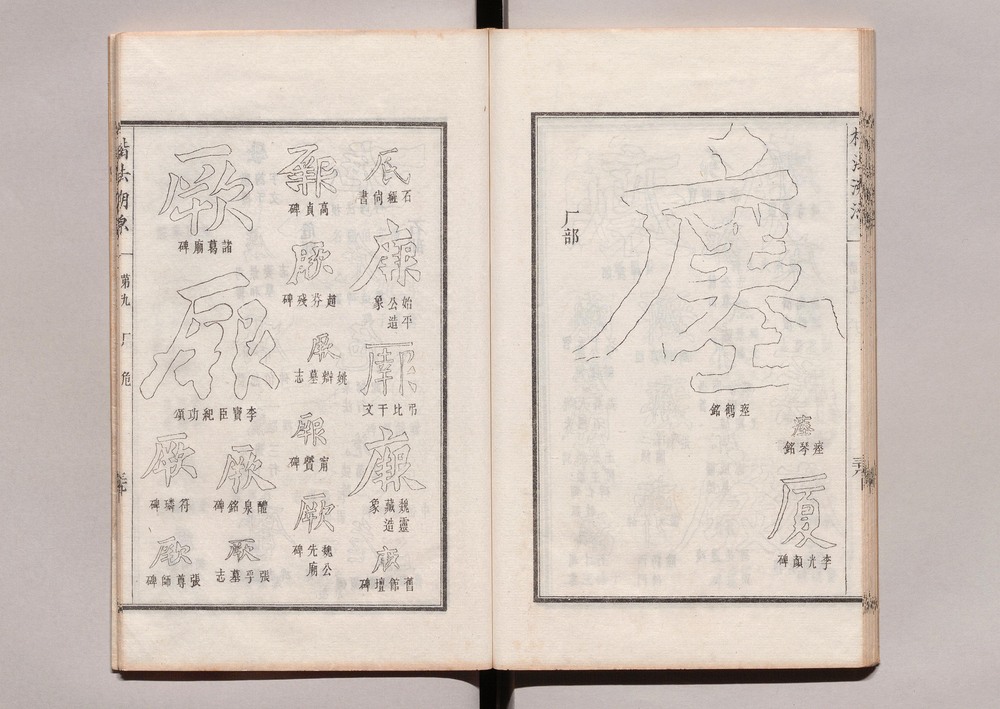 瘞
瘞琴銘
厦
李光顏碑
瘞
瘞鶴銘
厂部
石經尚書
始平公造象
弔比干文
魏靈藏造象
舊館壇碑
高貞碑
厥
趙芬殘碑
厥
姚辯墓志
甯贙碑
厥
魏先公廟碑
厥
諸葛廟碑
李寶臣紀功頌
厥
醴泉銘
厥
符璘碑
厥
張孚墓志
厥
張尊師碑
楷法溯源
第九 厂 危